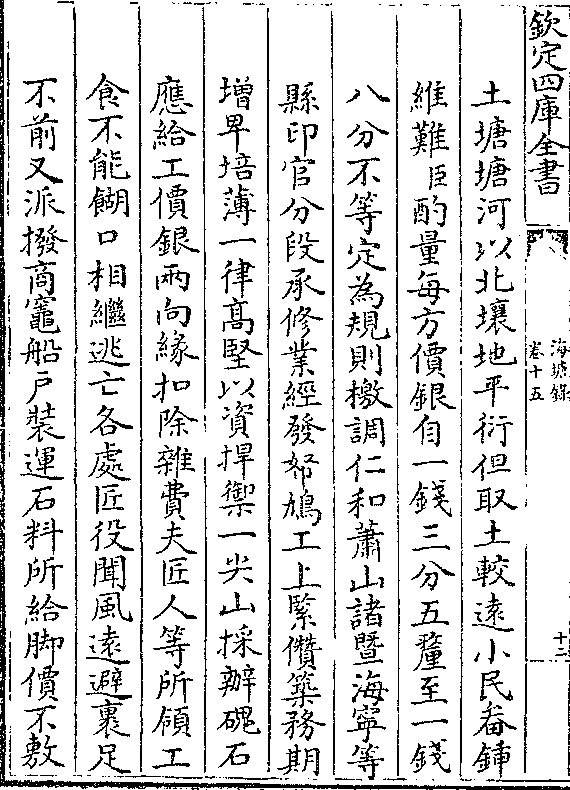 欽定四庫全書
海塘錄
卷十五
十二
土塘塘河以北壤地平衍但取土較遠小民畚鍤
維難臣酌量每方價銀自一錢三分五釐至一錢
八分不等定為規則檄調仁和蕭山諸暨海寧等
縣印官分段承修業經發帑鳩工上緊儹築務期
增卑培薄一律高堅以資捍禦一尖山採辦磈石
應給工價銀兩向緣扣除雜費夫匠人等所領工
食不能餬口相繼逃亡各處匠役聞風遠避裹足
不前又派撥商竈船戶裝運石料所給脚價不敷